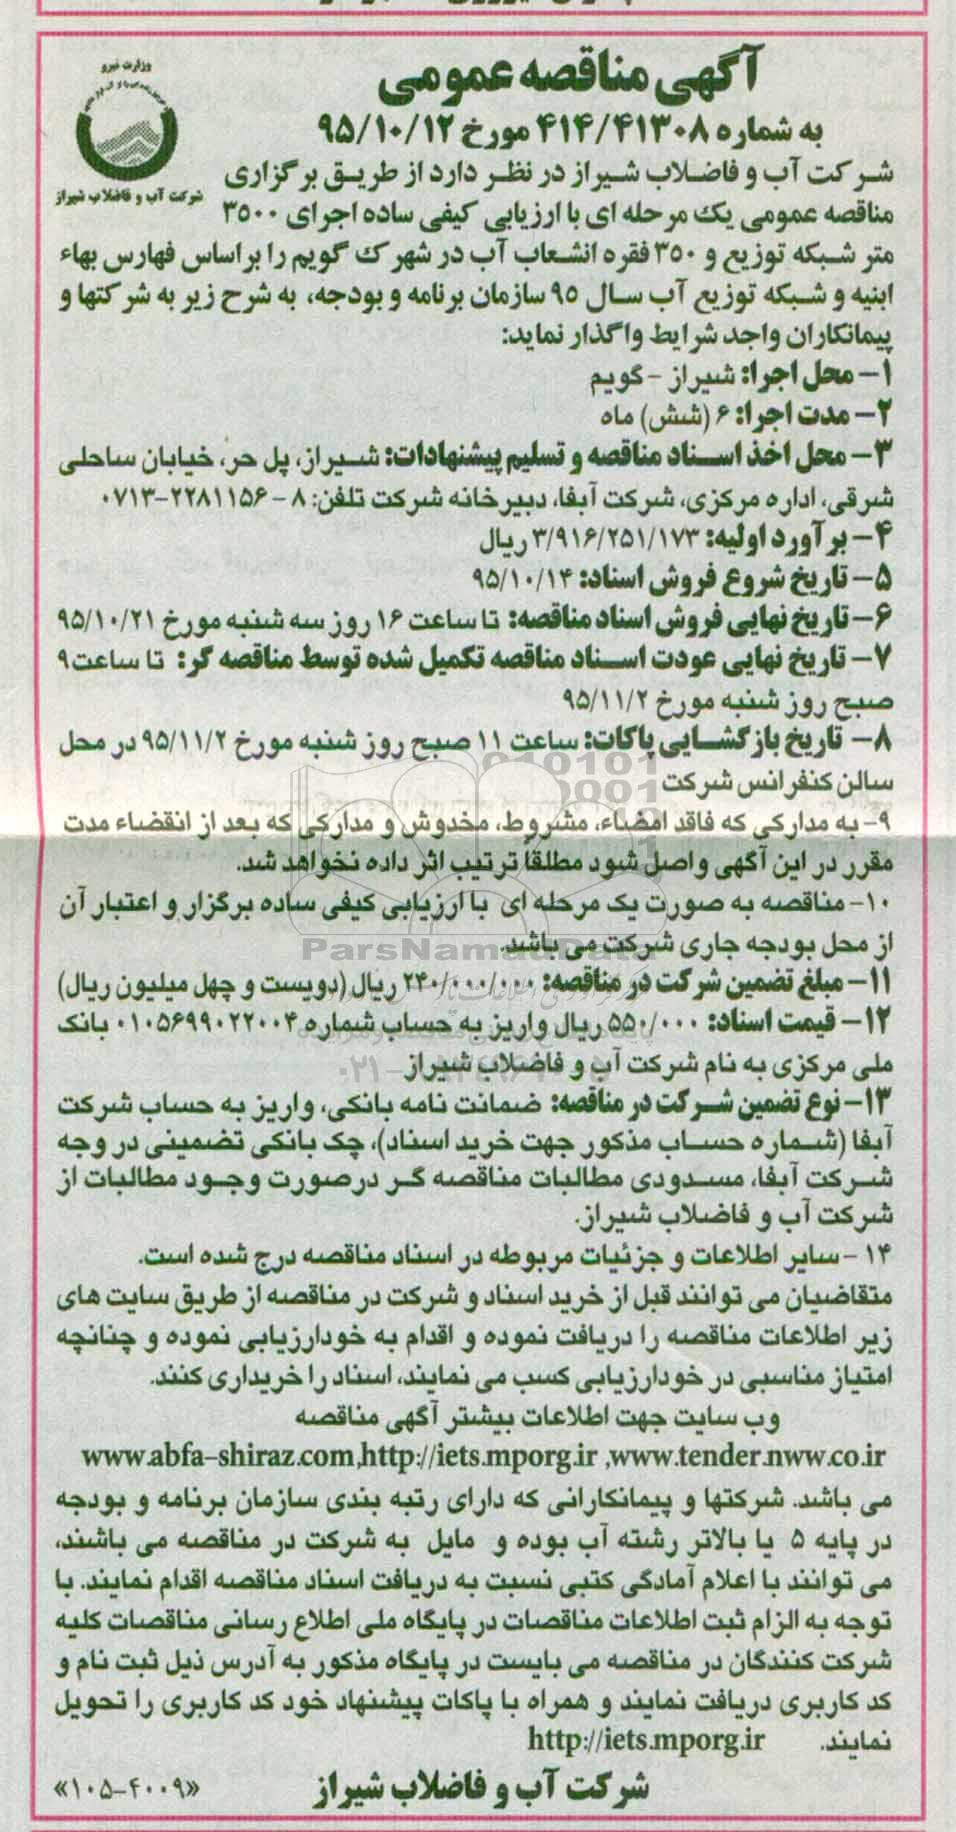 آگهی مناقصه عمومی
به شماره ۴۱۴/۴۱۳۰۸ مورخ ۹۵/۱۰/۱۲
وزارت نیرو
شرکت آب و فاضلاب شیراز
شرکت آب و فاضلاب شیراز در نظر دارد از طریق برگزاری
مناقصه عمومی یک مرحله ای با ارزیابی کیفی ساده اجرای ۳۵۰۰
متر شبکه توزیع و ۳۵۰ فقره انشعاب آب در شهرک گویم را براساس فهارس بهاء
ابنیه و شبکه توزیع آب سال ۹۵ سازمان برنامه و بودجه، به شرح زیر به شرکتها و
پیمانکاران واجد شرایط واگذار نماید:
۱- محل اجرا: شیراز - گویم
۲- مدت اجرا: ۶ (شش) ماه
۳- محل اخذ اسناد مناقصه و تسلیم پیشنهادات: شیراز، پل حر، خیابان ساحلی
شرقی، اداره مرکزی، شرکت آبفا، دبیرخانه شرکت تلفن: ۸ - ۲۲۸۱۱۵۶-۰۷۱۳
۴- برآورد اولیه: ۳/۹۱۶/۲۵۱/۱۷۳ ریال
۵- تاریخ شروع فروش اسناد: ۹۵/۱۰/۱۴
۶- تاریخ نهایی فروش اسناد مناقصه: تا ساعت ۱۶ روز سه شنبه مورخ ۹۵/۱۰/۲۱
۷- تاریخ نهایی عودت اسناد مناقصه تکمیل شده توسط مناقصه گر: تا ساعت ۹
صبح روز شنبه مورخ ۹۵/۱۱/۲
۸- تاریخ بازگشایی پاکات: ساعت ۱۱ صبح روز شنبه مورخ ۹۵/۱۱/۲ در محل
سالن کنفرانس شرکت
۹- به مدارکی که فاقد امضاء، مشروط، مخدوش و مدارکی که بعد از انقضاء مدت
مقرر در این آگهی واصل شود مطلقاً ترتیب اثر داده نخواهد شد.
۱۰- مناقصه به صورت یک مرحله ای با ارزیابی کیفی ساده برگزار و اعتبار آن
از محل بودجه جاری شرکت می باشد.
ParsNamadData
۱۱- مبلغ تضمین شرکت در مناقصه: ۲۴۰/۰۰۰/۰۰۰ ریال (دویست و چهل میلیون ریال)
۱۲- قیمت اسناد: ۵۵۰/۰۰۰ ریال واریز به حساب شماره ۰۱۰۵۶۹۹۰۲۲۰۰۴ بانک
ملی مرکزی به نام شرکت آب و فاضلاب شیراز
۱۳- نوع تضمین شرکت در مناقصه: ضمانت نامه بانکی، واریز به حساب شرکت
آبفا (شماره حساب مذکور جهت خرید اسناد)، چک بانکی تضمینی در وجه
شرکت آبفا، مسدودی مطالبات مناقصه گر درصورت وجود مطالبات از
شرکت آب و فاضلاب شیراز.
۱۴ - سایر اطلاعات و جزئیات مربوطه در اسناد مناقصه درج شده است.
متقاضیان می توانند قبل از خرید اسناد و شرکت در مناقصه از طریق سایت های
زیر اطلاعات مناقصه را دریافت نموده و اقدام به خودارزیابی نموده و چنانچه
امتیاز مناسبی در خودارزیابی کسب می نمایند، اسناد را خریداری کنند.
وب سایت جهت اطلاعات بیشتر آگهی مناقصه
www.abfa-shiraz.com,http://iets.mporg.ir ,www.tender.nww.co.ir
می باشد. شرکتها و پیمانکارانی که دارای رتبه بندی سازمان برنامه و بودجه
در پایه ۵ یا بالاتر رشته آب بوده و مایل به شرکت در مناقصه می باشند،
می توانند با اعلام آمادگی کتبی نسبت به دریافت اسناد مناقصه اقدام نمایند. با
توجه به الزام ثبت اطلاعات مناقصات در پایگاه ملی اطلاع رسانی مناقصات کلیه
شرکت کنندگان در مناقصه می بایست در پایگاه مذکور به آدرس ذیل ثبت نام و
کد کاربری دریافت نمایند و همراه با پاکات پیشنهاد خود کد کاربری را تحویل
نمایند. http://iets.mporg.ir
شرکت آب و فاضلاب شیراز
«۱۰۵-۴۰۰۹»